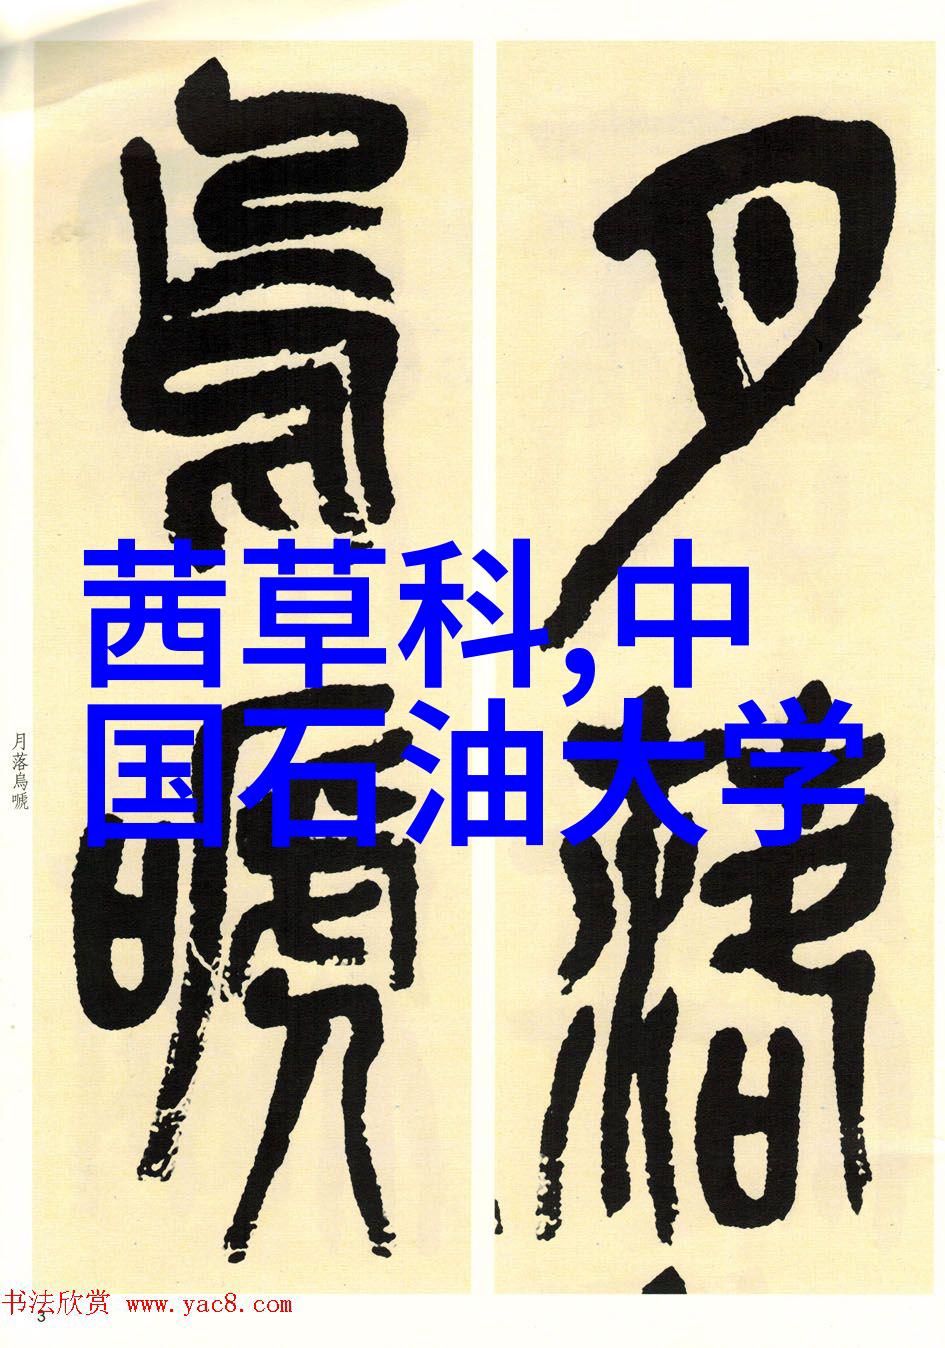 月落
烏嗁
茜草科,中
国石油大学
月落烏嗁
书法欣赏 www.yac8.com
3